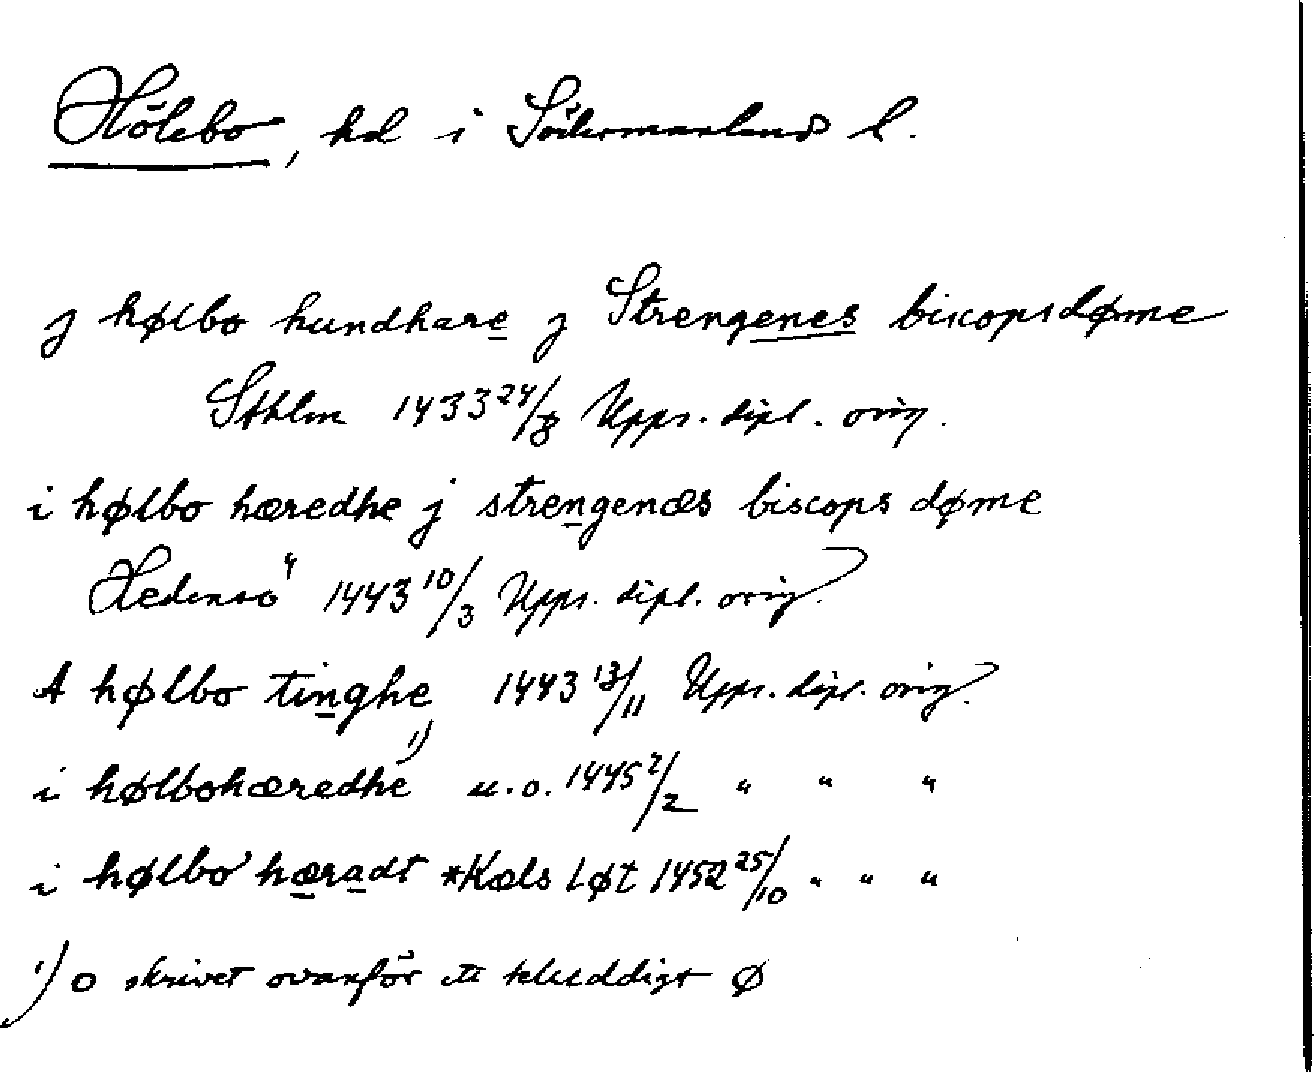 Hölebo, hd i Södermanlands l.
j hølbo hundhare j Strengenes biscopsdøme
Sthlm 1433 24/8 Upps. dipl. orig.
i hølbo hæredhe j strengenæs biscops døme
Hedensö 1443 10/3 Upps. dipl. orig.
A hølbo tinghe 1443 13/11 Upps. dipl. orig.
i hølbohæredhe 1) u.o. 1445 2/2 " " "
i hølbo hæradt *Kæls løt 1452 25/10 " " "
1) o skrivet ovanför ett tydligt ø